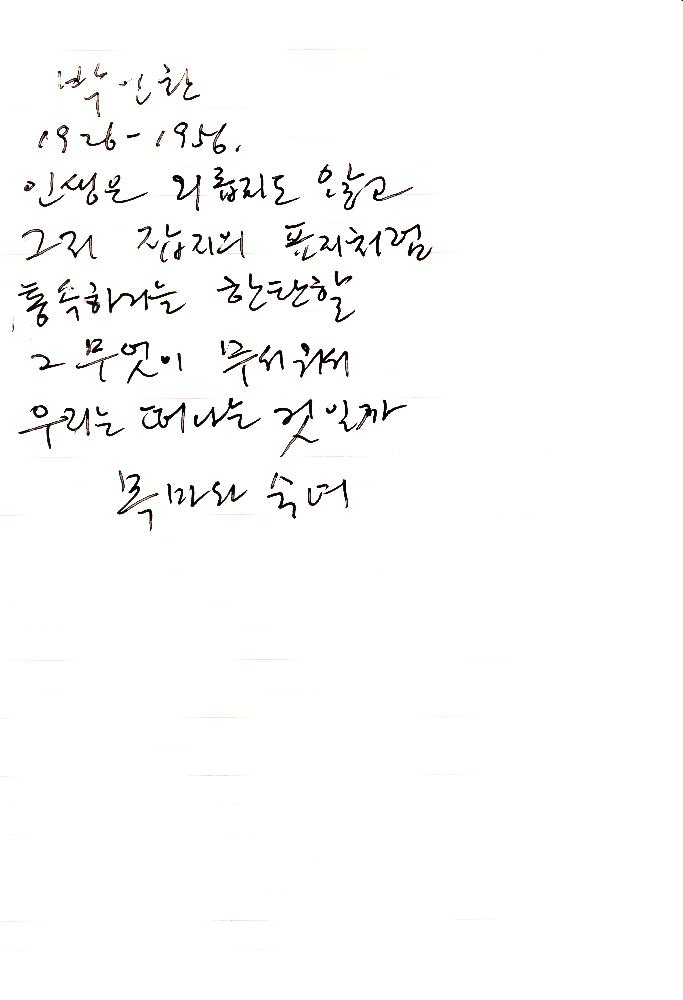 박인환
1926-1956.
인생은 외롭지도 않고
그저 잡지의 표지처럼
통속하거늘 한탄할
그 무엇이 무서워서
우리는 떠나는 것일까
목마와 숙녀